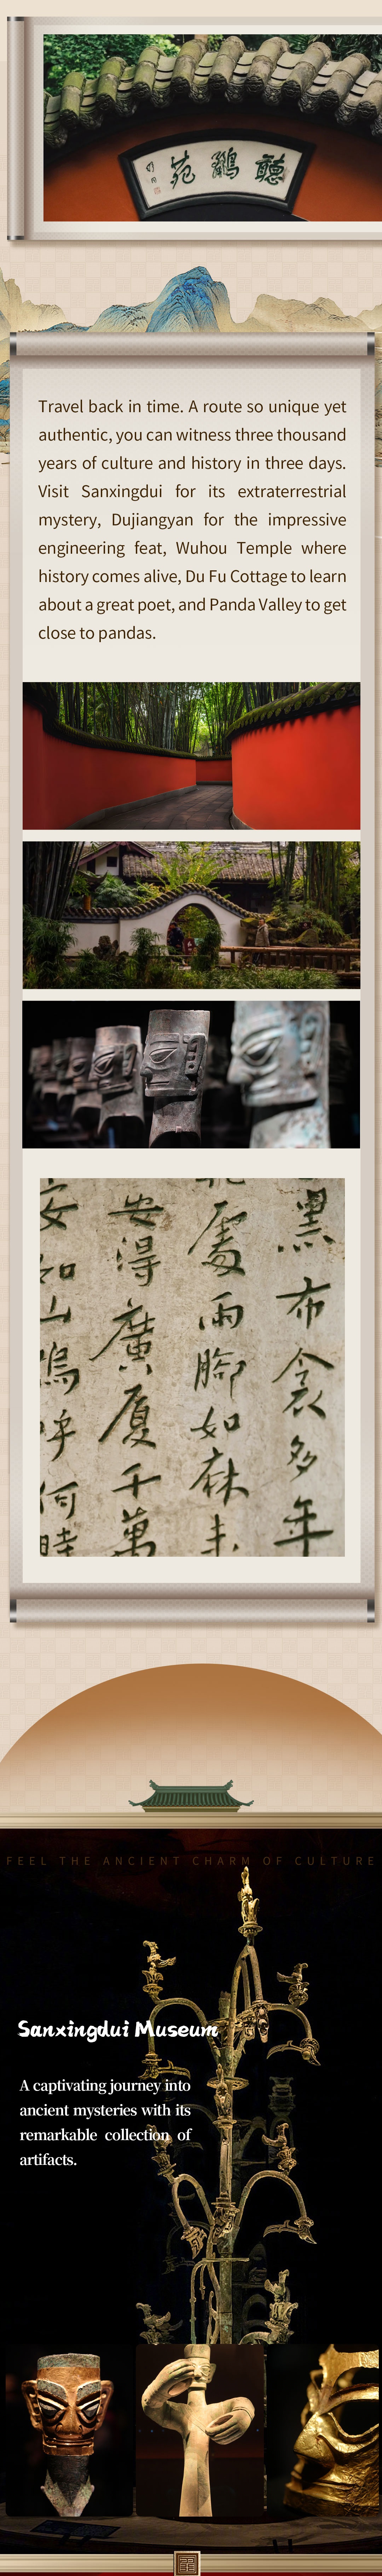 聽鸝苑
Travel back in time. A route so unique yet
authentic, you can witness three thousand
years of culture and history in three days.
Visit Sanxingdui for its extraterrestrial
mystery, Dujiangyan for the impressive
engineering feat, Wuhou Temple where
history comes alive, Du Fu Cottage to learn
about a great poet, and Panda Valley to get
close to pandas.
黑布衾多年
處雨腳如麻未
安得廣厦千萬
安如山嗚呼何時
FEEL THE ANCIENT CHARM OF CULTURE
Sanxingdui Museum
A captivating journey into
ancient mysteries with its
remarkable collection of
artifacts.